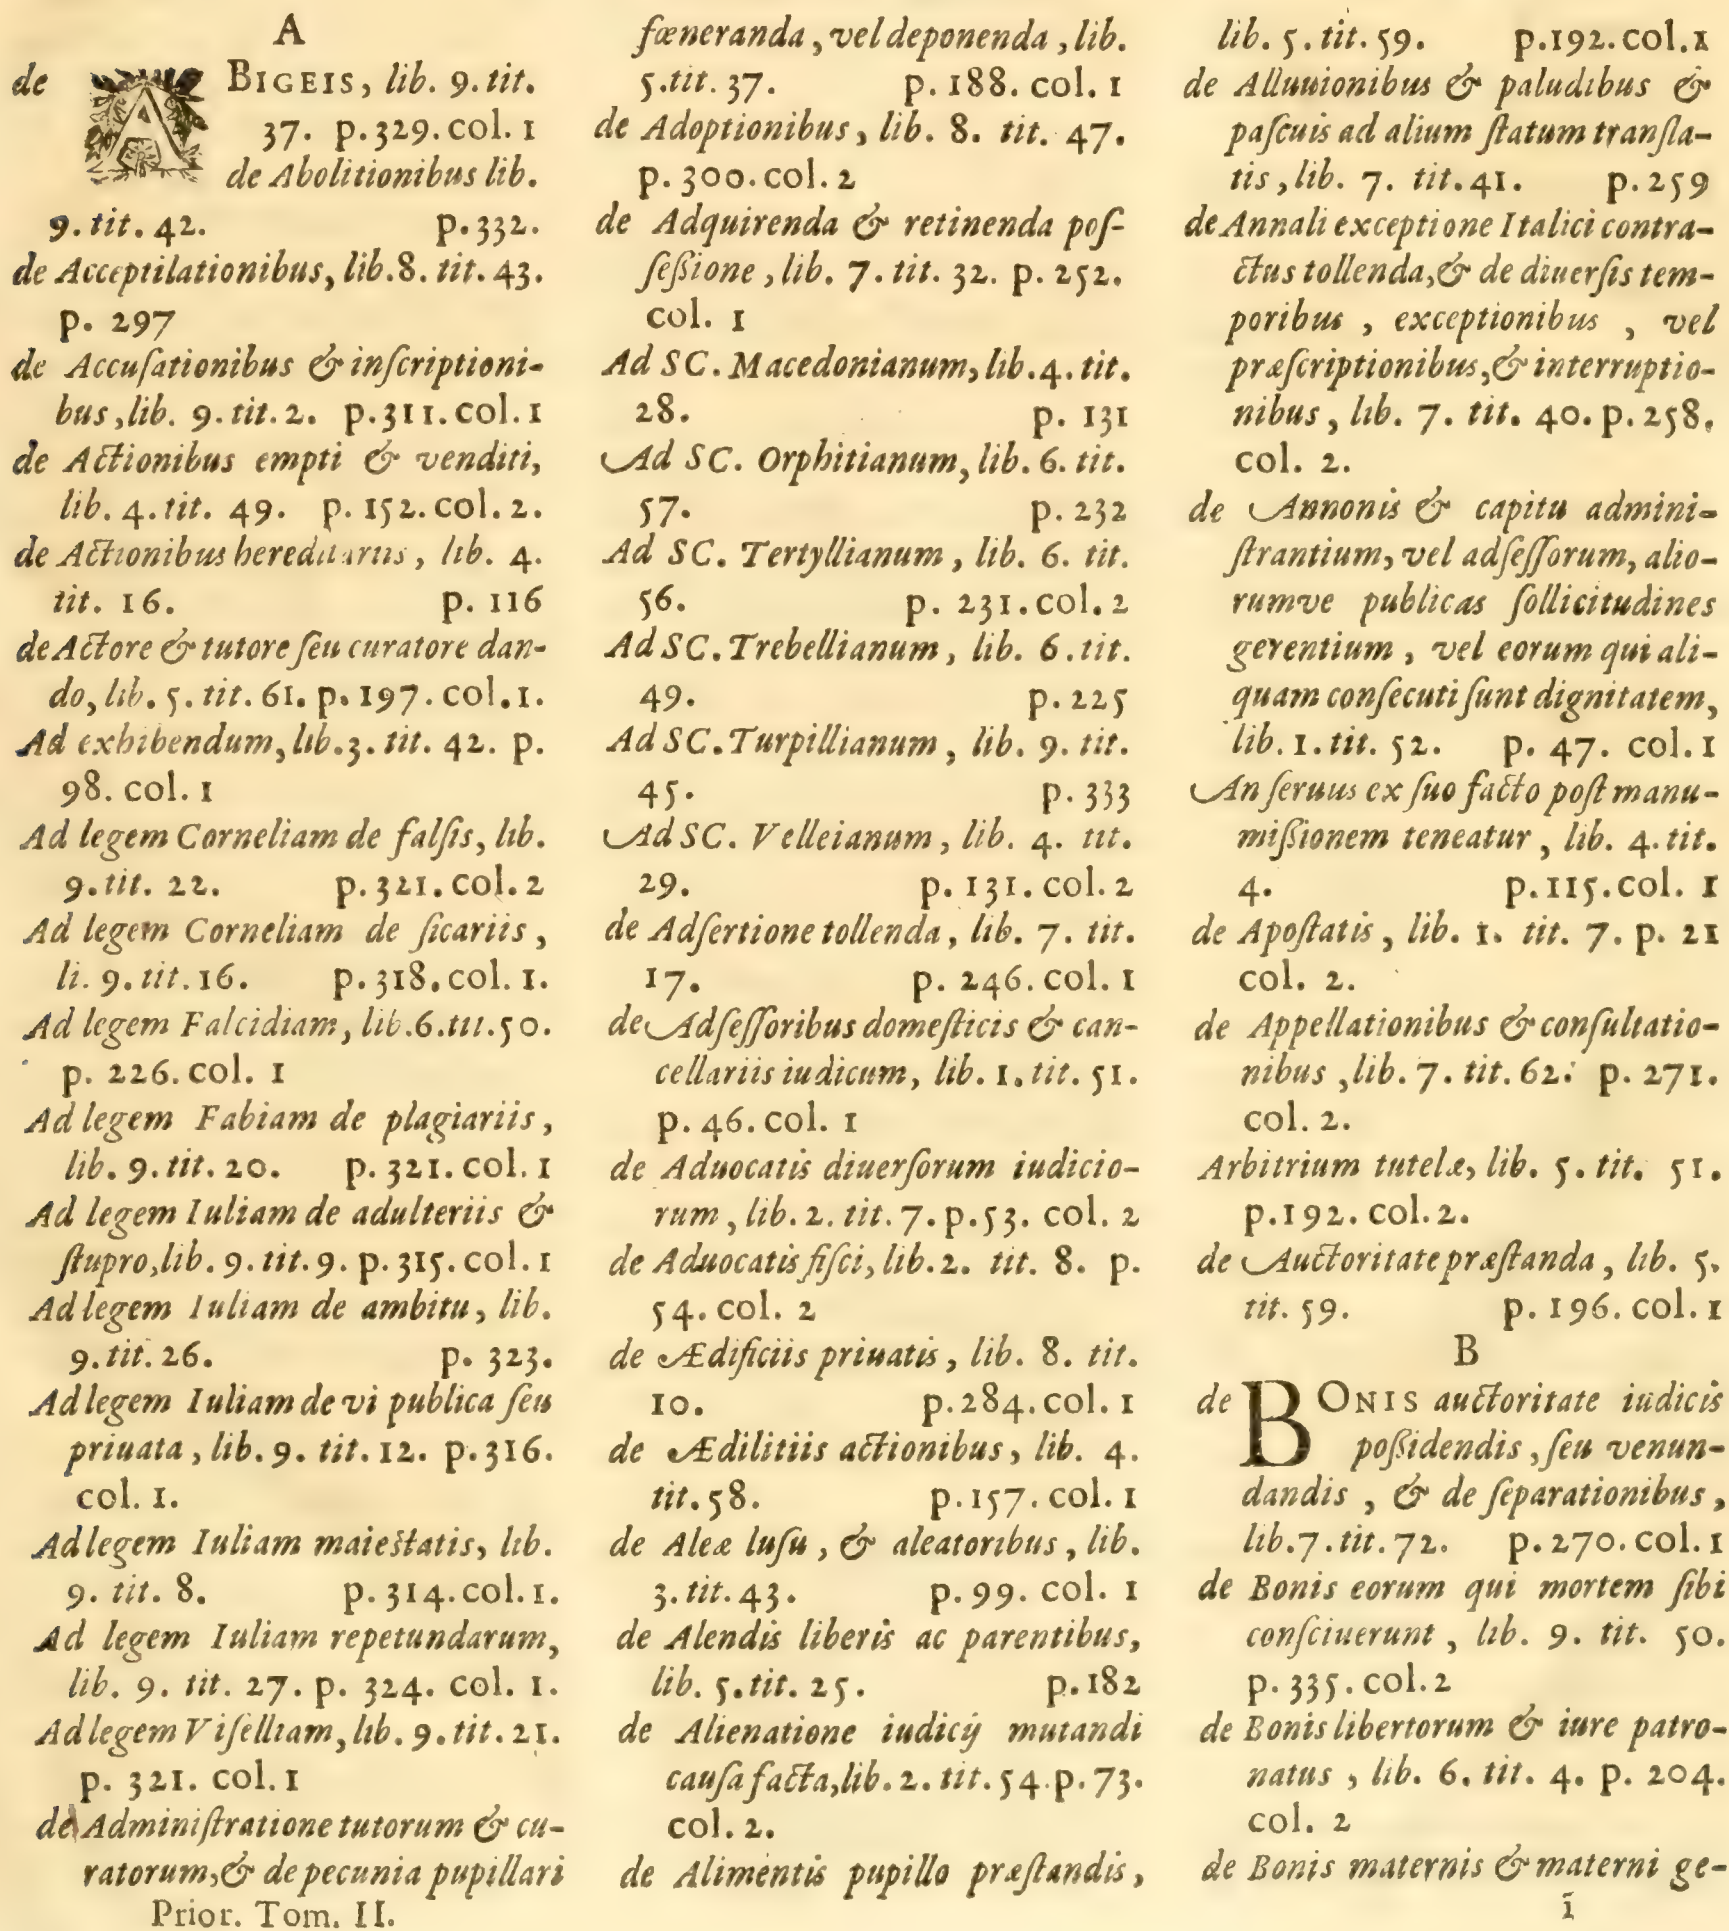 A
de ABIGEIS, lib. 9. tit.
37. p. 329. col. 1
de Abolitionibus lib.
9. tit. 42. p. 332.
de Acceptilationibus, lib. 8. tit. 43.
p. 297
de Accuſationibus & inſcriptioni-
bus, lib. 9. tit. 2. p. 311. col. 1
de Actionibus empti & venditi,
lib. 4. tit. 49. p. 152. col. 2.
de Actionibus hereditariis, lib. 4.
tit. 16. p. 116
de Actore & tutore ſeu curatore dan-
do, lib. 5. tit. 61. p. 197. col. 1.
Ad exhibendum, lib. 3. tit. 42. p.
98. col. 1
Ad legem Corneliam de falſis, lib.
9. tit. 22. p. 321. col. 2
Ad legem Corneliam de ſicariis,
li. 9. tit. 16. p. 318. col. 1.
Ad legem Falcidiam, lib. 6. tit. 50.
p. 226. col. 1
Ad legem Fabiam de plagiariis,
lib. 9. tit. 20. p. 321. col. 1
Ad legem Iuliam de adulteriis &
ſtupro, lib. 9. tit. 9. p. 315. col. 1
Ad legem Iuliam de ambitu, lib.
9. tit. 26. p. 323.
Ad legem Iuliam de vi publica ſeu
priuata, lib. 9. tit. 12. p. 316.
col. 1.
Ad legem Iuliam maieſtatis, lib.
9. tit. 8. p. 314. col. 1.
Ad legem Iuliam repetundarum,
lib. 9. tit. 27. p. 324. col. 1.
Ad legem Viſelliam, lib. 9. tit. 21.
p. 321. col. 1
de Adminiſtratione tutorum & cu-
ratorum, & de pecunia pupillari
Prior. Tom. II.
fœneranda, vel deponenda, lib.
5. tit. 37. p. 188. col. 1
de Adoptionibus, lib. 8. tit. 47.
p. 300. col. 2
de Adquirenda & retinenda poſ-
ſeßione, lib. 7. tit. 32. p. 252.
col. 1
Ad SC. Macedonianum, lib. 4. tit.
28. p. 131
Ad SC. Orphitianum, lib. 6. tit.
57. p. 232
Ad SC. Tertyllianum, lib. 6. tit.
56. p. 231. col. 2
Ad SC. Trebellianum, lib. 6. tit.
49. p. 225
Ad SC. Turpillianum, lib. 9. tit.
45. p. 333
Ad SC. Velleianum, lib. 4. tit.
29. p. 131. col. 2
de Adſertione tollenda, lib. 7. tit.
17. p. 246. col. 1
de Adſeſſoribus domeſticis & can-
cellariis iudicum, lib. 1. tit. 51.
p. 46. col. 1
de Aduocatis diuerſorum iudicio-
rum, lib. 2. tit. 7. p. 53. col. 2
de Aduocatis fiſci, lib. 2. tit. 8. p.
54. col. 2
de Ædificiis priuatis, lib. 8. tit.
10. p. 284. col. 1
de Ædilitiis actionibus, lib. 4.
tit. 58. p. 157. col. 1
de Aleæ luſu, & aleatoribus, lib.
3. tit. 43. p. 99. col. 1
de Alendis liberis ac parentibus,
lib. 5. tit. 25. p. 182
de Alienatione iudicij mutandi
cauſa facta, lib. 2. tit. 54. p. 73.
col. 2.
de Alimentis pupillo præſtandis,
lib. 5. tit. 59. p. 192. col. 1
de Alluuionibus & paludibus &
paſcuis ad alium ſtatum tranſla-
tis, lib. 7. tit. 41. p. 259
de Annali exceptione Italici contra-
ctus tollenda, & de diuerſis tem-
poribus, exceptionibus, vel
præſcriptionibus, & interruptio-
nibus, lib. 7. tit. 40. p. 258.
col. 2.
de Annonis & capitu admini-
ſtrantium, vel adſeſſorum, alio-
rumve publicas ſollicitudines
gerentium, vel eorum qui ali-
quam conſecuti ſunt dignitatem,
lib. 1. tit. 52. p. 47. col. 1
An ſeruus ex ſuo facto poſt manu-
mißionem teneatur, lib. 4. tit.
4. p. 115. col. 1
de Apoſtatis, lib. 1. tit. 7. p. 21
col. 2.
de Appellationibus & conſultatio-
nibus, lib. 7. tit. 62: p. 271.
col. 2.
Arbitrium tutelæ, lib. 5. tit. 51.
p. 192. col. 2.
de Auctoritate præſtanda, lib. 5.
tit. 59. p. 196. col. 1
B
de BONIS auctoritate iudicis
poßidendis, ſeu venun-
dandis, & de ſeparationibus,
lib. 7. tit. 72. p. 270. col. 1
de Bonis eorum qui mortem ſibi
conſciuerunt, lib. 9. tit. 50.
p. 335. col. 2
de Bonis libertorum & iure patro-
natus, lib. 6. tit. 4. p. 204.
col. 2
de Bonis maternis & materni ge-
ī